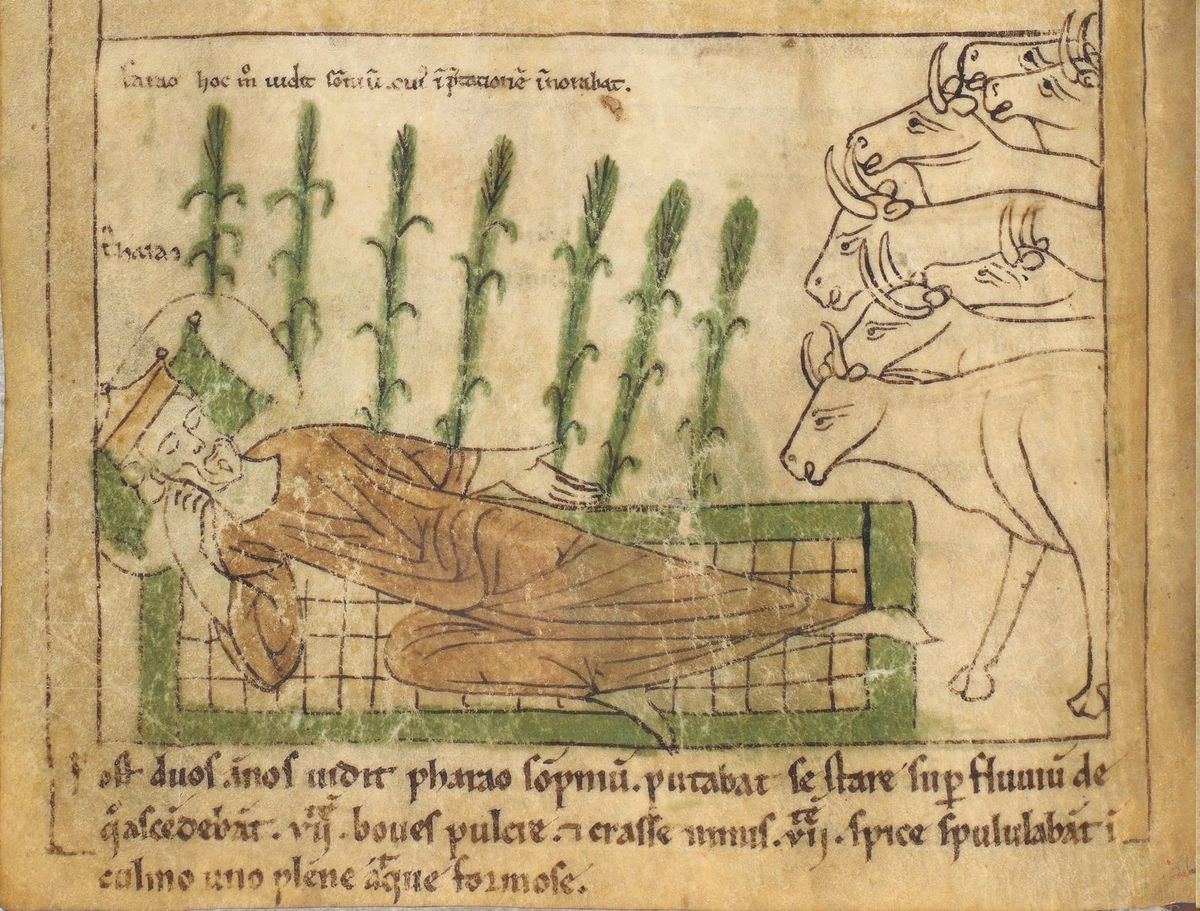 Farao hoc m̊ uidit so͞niu͞. cui᷒ i͞p͞tacione͞ i͞norabat.
pharao
ost duos ānos uidit pharao so͞pniu͞. putabat se stare sup̱ fluuiu͞ de
q̊ asce͞deba͞t. vii. boues pulcre. ⁊ crasse nimis. vii. spice pululaba͞t i
culmo uno plene atque formose.